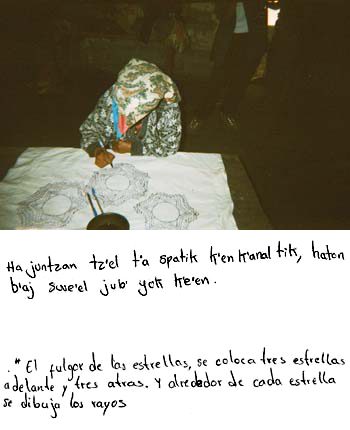 Ha juntzan tz'el t'a spatik k'en k'anal tik, haton
b'aj swe'el jub' yok ke'en.
." El fulgor de las estrellas, se coloca tres estrellas
adelante y tres atras. Y alrededor de cada estrella
se dibuja los rayos